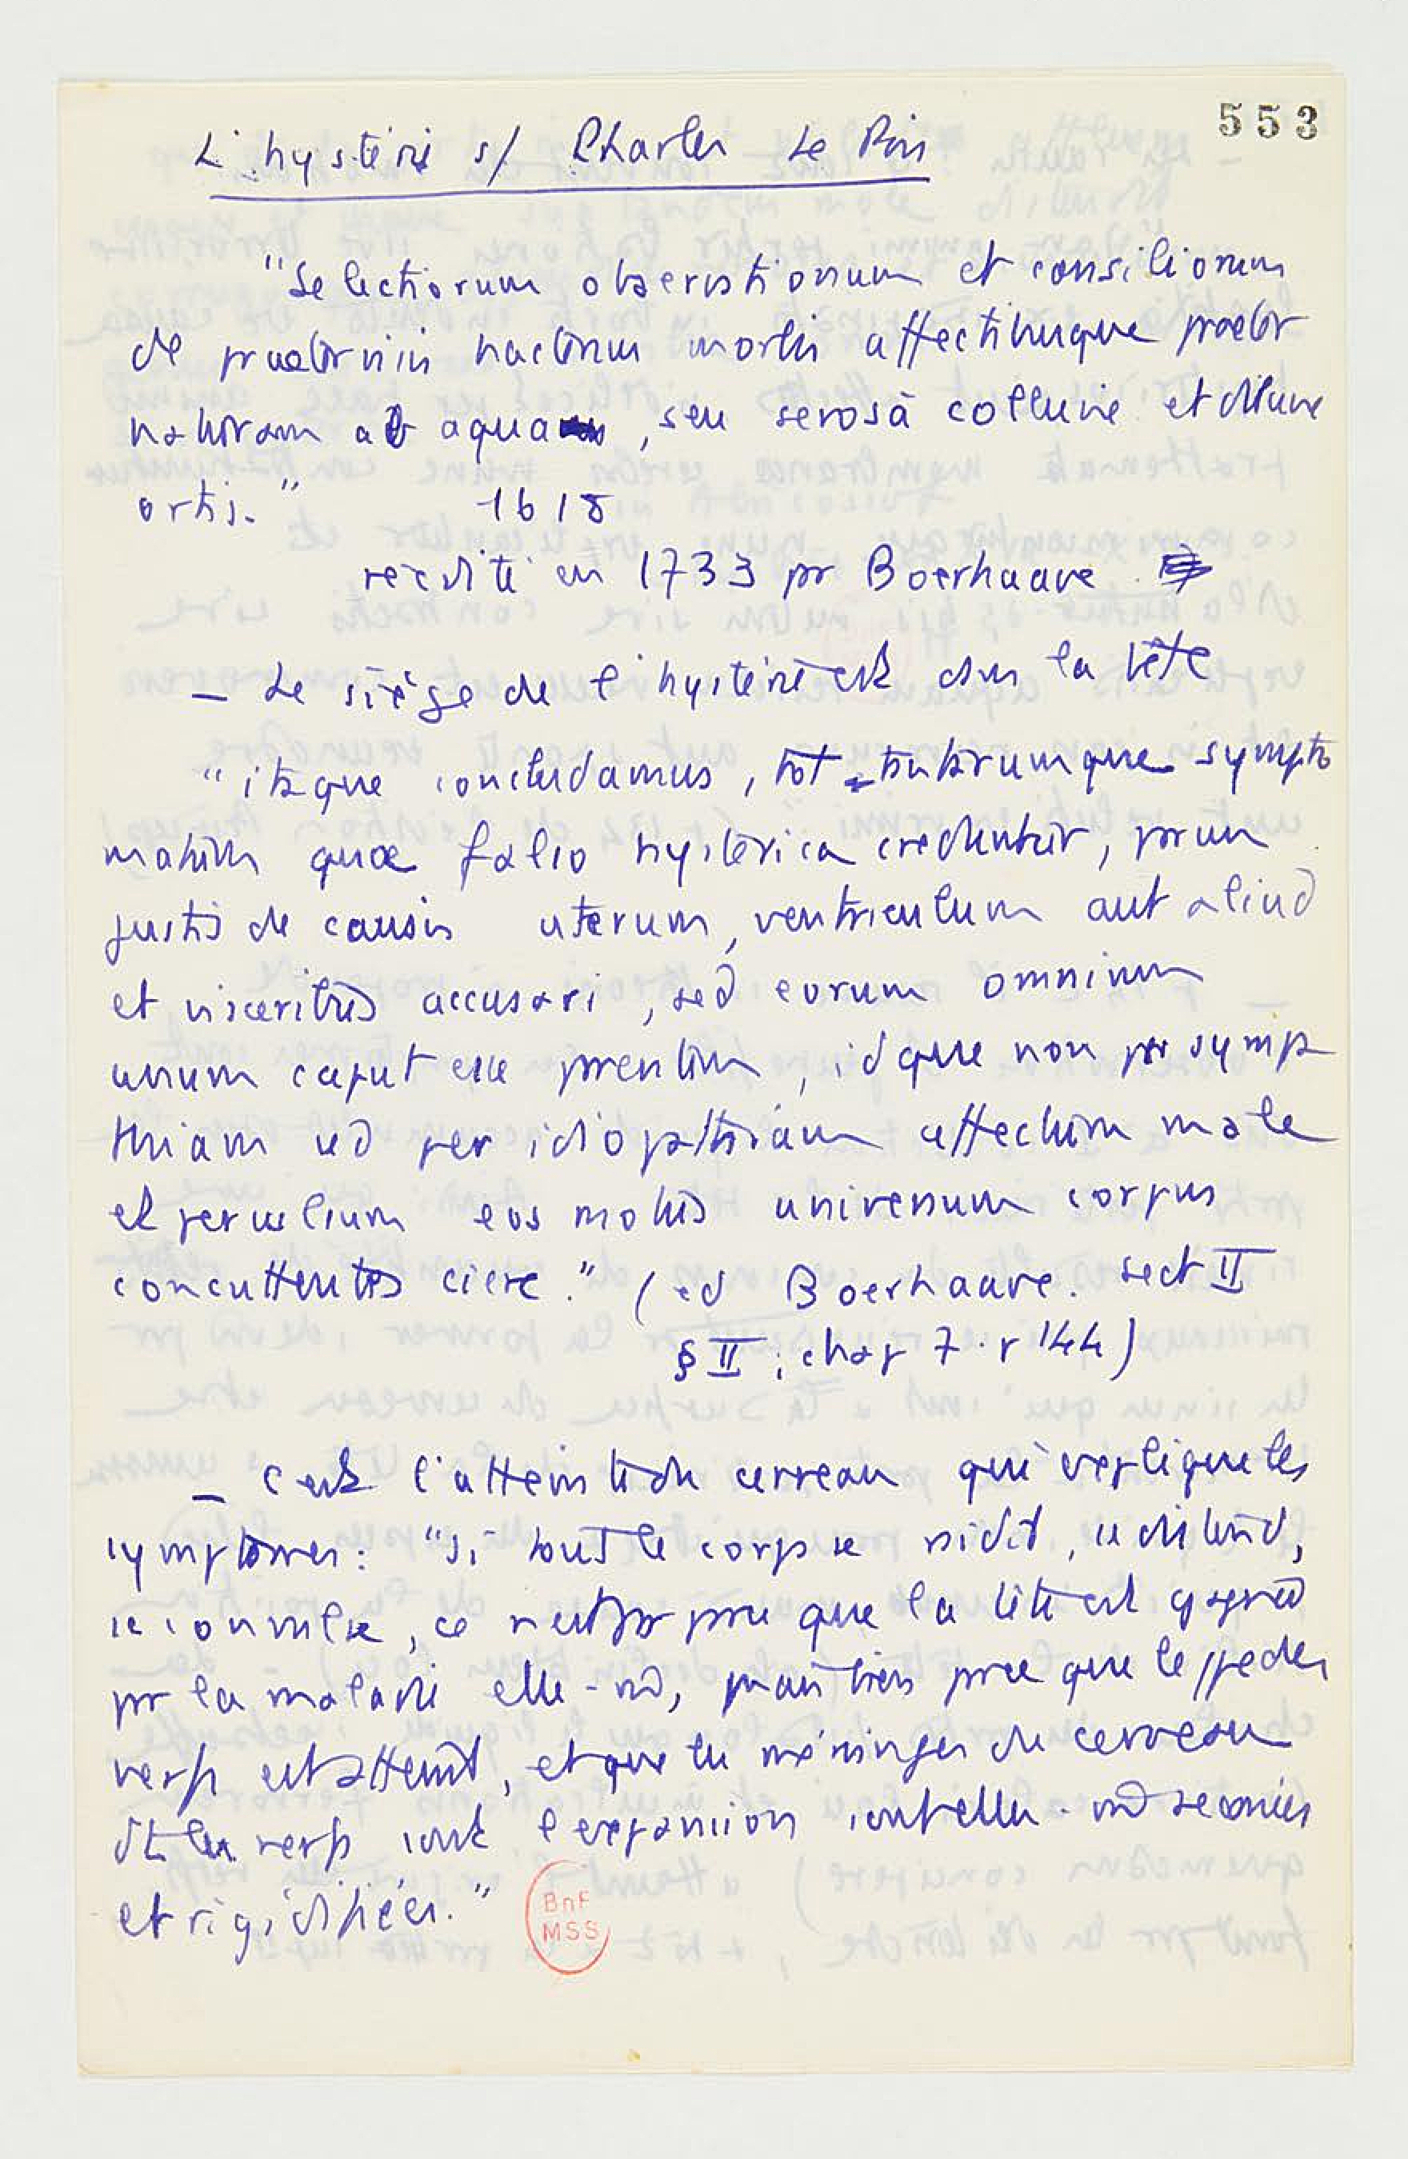 553
L'hystérie s/ Charles Le Pois
"Selectiorum observationum et consiliorum
de praetervisis hactenus morbis affectibusque praeter
naturam ab aqua, seu serosa colluvie et diluvie
ortis." 1618
réédité en 1733 par Boerhaave
– Le siège de l'hystérie est dans la tête
"itaque concludamus, tot tantorumque sympto
matum quae falso hysterica creduntur,
justis de causis uterum, ventriculum aut aliud
et visceribus accusari, sed eorum omnium
unum caput esse parentem, idque non per sympa
thiam sed per idiopathiam affectum male
et eos motus universum corpus
concuttentes ciere." (ed Boerhaave. sect II
§ II ; chap 7. p 144)
– C'est l'atteinte du cerveau qui explique les
symptomes : "si tout le corps se raidit, se distend,
se convulse, ce n'est pas parce que la tête est gagnée
par la maladie elle-m̂, mais bien parce que le des
nerfs est atteint, et que les méninges du cerveau
dt les nerfs sont l'expansion sont elles-m̂ secouées
et rigidifiées."
BnF
MSS